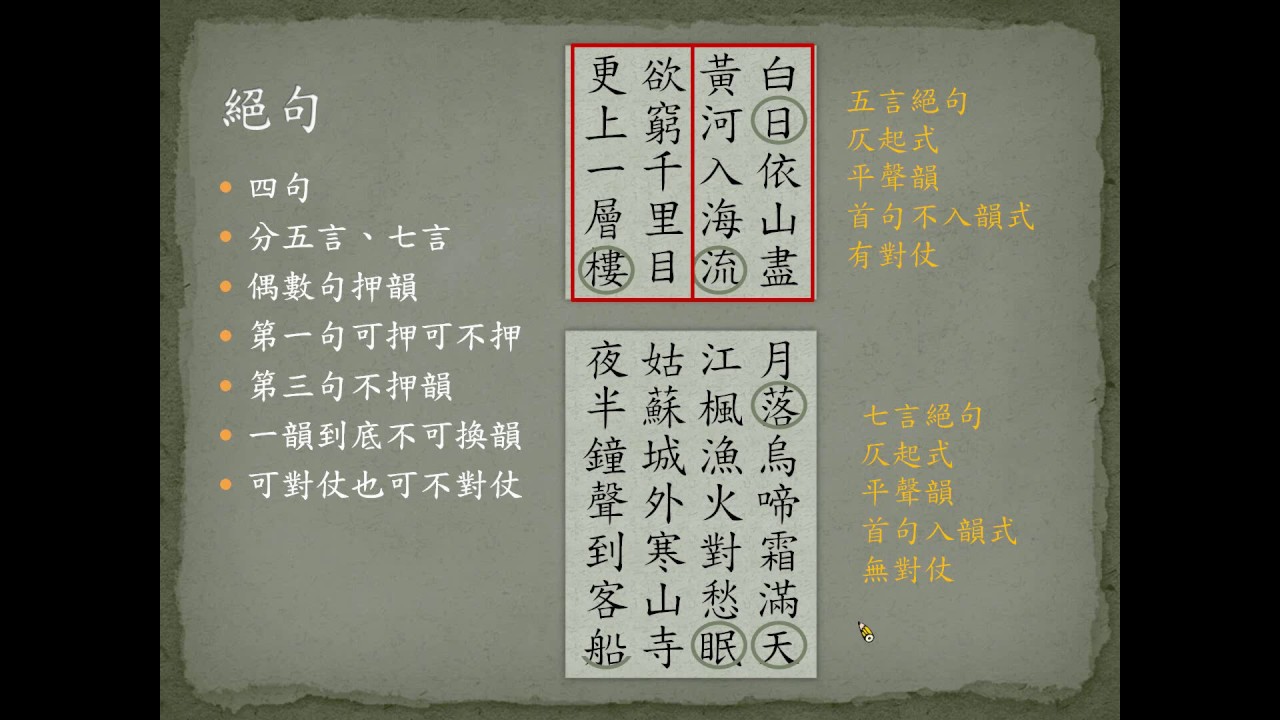 絕句
四句
分五言、七言
偶數句押韻
第一句可押可不押
第三句不押韻
一韻到底不可換韻
可對仗也可不對仗
白日依山盡
黃河入海流
欲窮千里目
更上一層樓
五言絕句
仄起式
平聲韻
首句不入韻式
有對仗
月落烏啼霜滿天
江楓漁火對愁眠
姑蘇城外寒山寺
夜半鐘聲到客船
七言絕句
仄起式
平聲韻
首句入韻式
無對仗